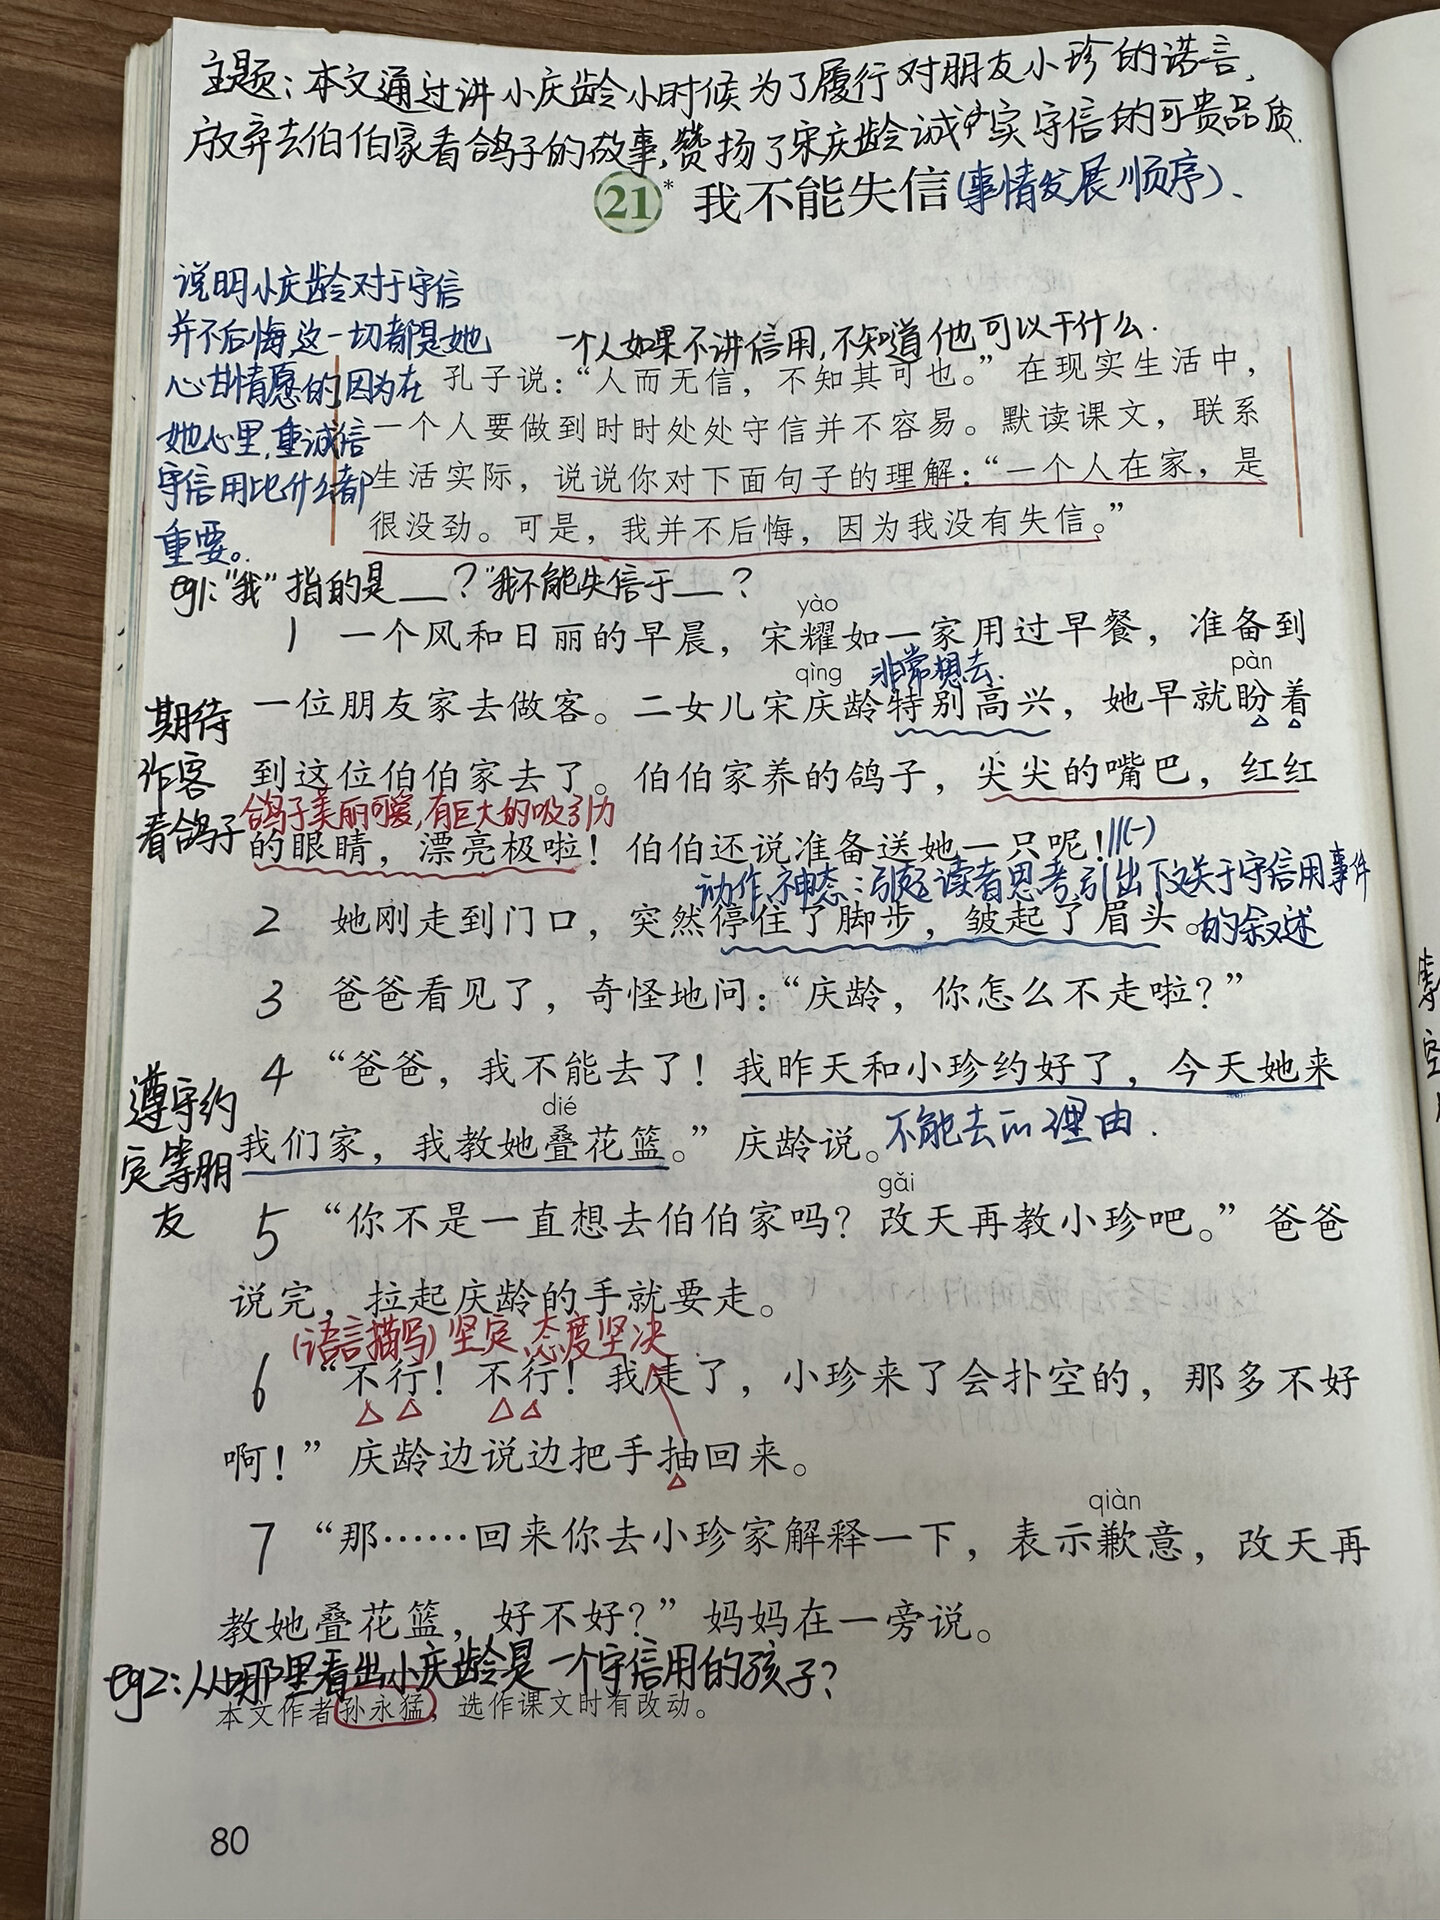 主题：本文通过讲小庆龄小时候为了履行对朋友小珍的诺言，
放弃去伯伯家看鸽子的故事，赞扬了宋庆龄诚实守信的可贵品质.
21* 我不能失信（事情发展顺序）、
说明小庆龄对于守信
并不后悔,这一切都是她
心甘情愿的,因为在
她心里,重诚信
守信用比什么都
重要。
一个人如果不讲信用,不知道他可以干什么.
孔子说：“人而无信，不知其可也。”在现实生活中，
一个人要做到时时处处守信并不容易。默读课文，联系
生活实际，说说你对下面句子的理解：“一个人在家，是
很没劲。可是，我并不后悔，因为我没有失信。”
eg1:“我”指的是__？“我不能失信于__？
yào
1 一个风和日丽的早晨，宋耀如一家用过早餐，准备到
qìng 非常想去. pàn
一位朋友家去做客。二女儿宋庆龄特别高兴，她早就盼着
期待
作客
看鸽子
到这位伯伯家去了。伯伯家养的鸽子，尖尖的嘴巴，红红
鸽子美丽可爱,有巨大的吸引力
的眼睛，漂亮极啦！伯伯还说准备送她一只呢！//(一)
动作、神态：引起读者思考,引出下文关于守信用事件
的叙述
2 她刚走到门口，突然停住了脚步，皱起了眉头。
3 爸爸看见了，奇怪地问：“庆龄，你怎么不走啦？”
4 “爸爸，我不能去了！我昨天和小珍约好了，今天她来
dié
我们家，我教她叠花篮。”庆龄说。不能去的理由.
遵守约
定等朋
友
gǎi
5 “你不是一直想去伯伯家吗？改天再教小珍吧。”爸爸
说完，拉起庆龄的手就要走。
(语言描写) 坚定、态度坚决
6 “不行！不行！我走了，小珍来了会扑空的，那多不好
啊！”庆龄边说边把手抽回来。
qiàn
7 “那……回来你去小珍家解释一下，表示歉意，改天再
教她叠花篮，好不好？”妈妈在一旁说。
eg2:从哪里看出小庆龄是一个守信用的孩子?
本文作者孙永猛，选作课文时有改动。
80